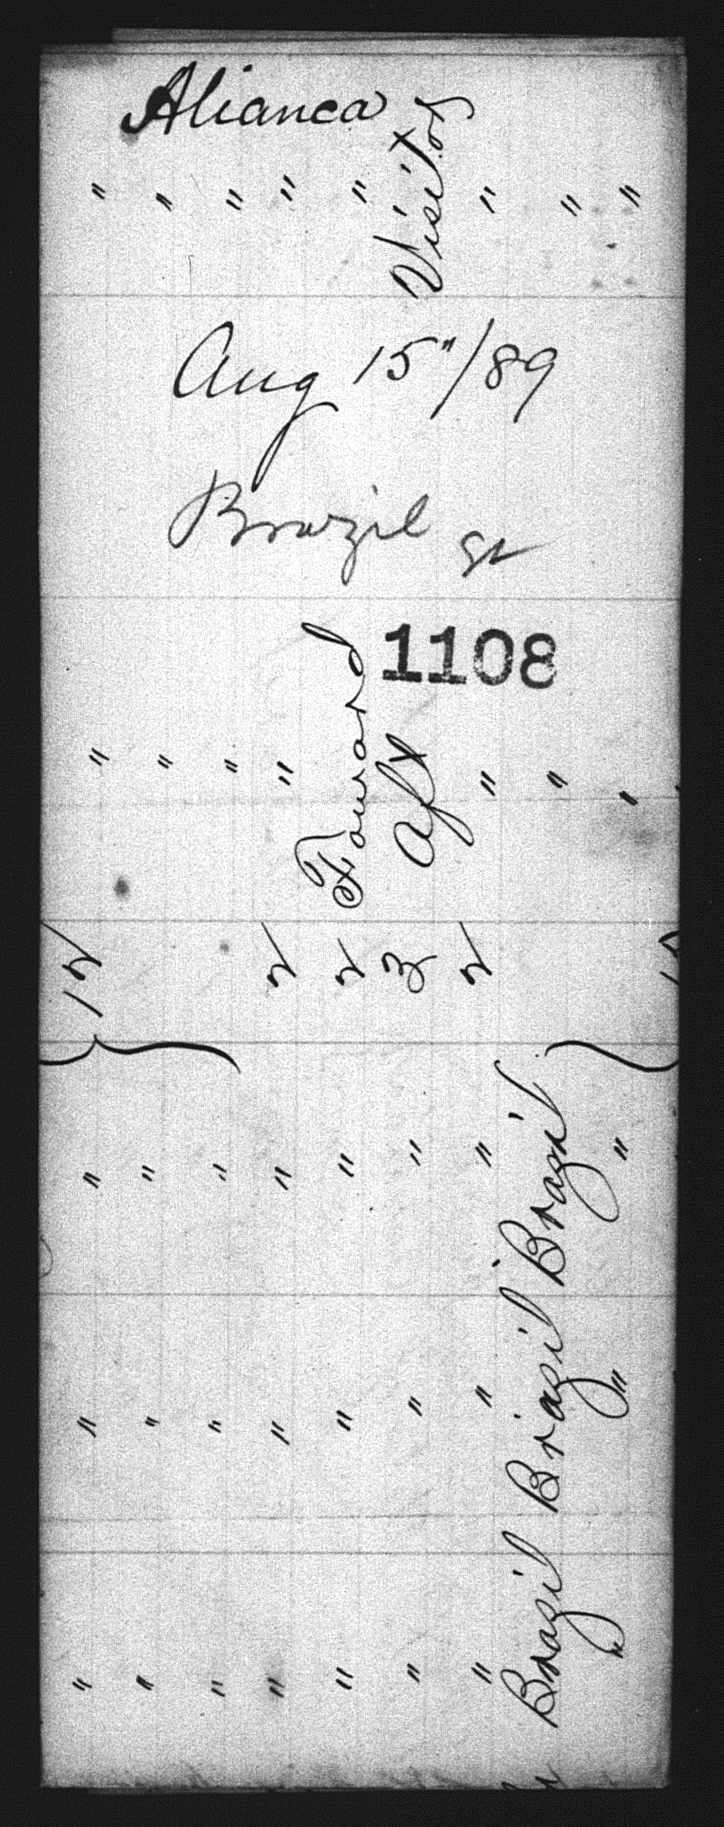 Alianca
Aug 15"/89
Brazil
1108
" " " " " Visitor " " "
" " " " Foward Aft " " "
12 2 2 3 2
" " " " " " " Brazil "
" " " " " " " Brazil "
" " " " " " " Brazil "